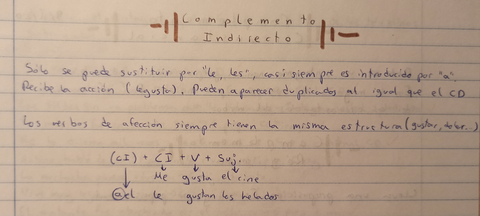 Complemento
Indirecto
Sólo se puede sustituir por "le, les", casi siempre es introducido por "a".
Recibe la acción (le gusta). Pueden aparecer duplicados al igual que el CD
Los verbos de afección siempre tienen la misma estructura (gustar, doler...)
(CI) + CI + V + Suj.
Me gusta el cine
a el le gustan los helados